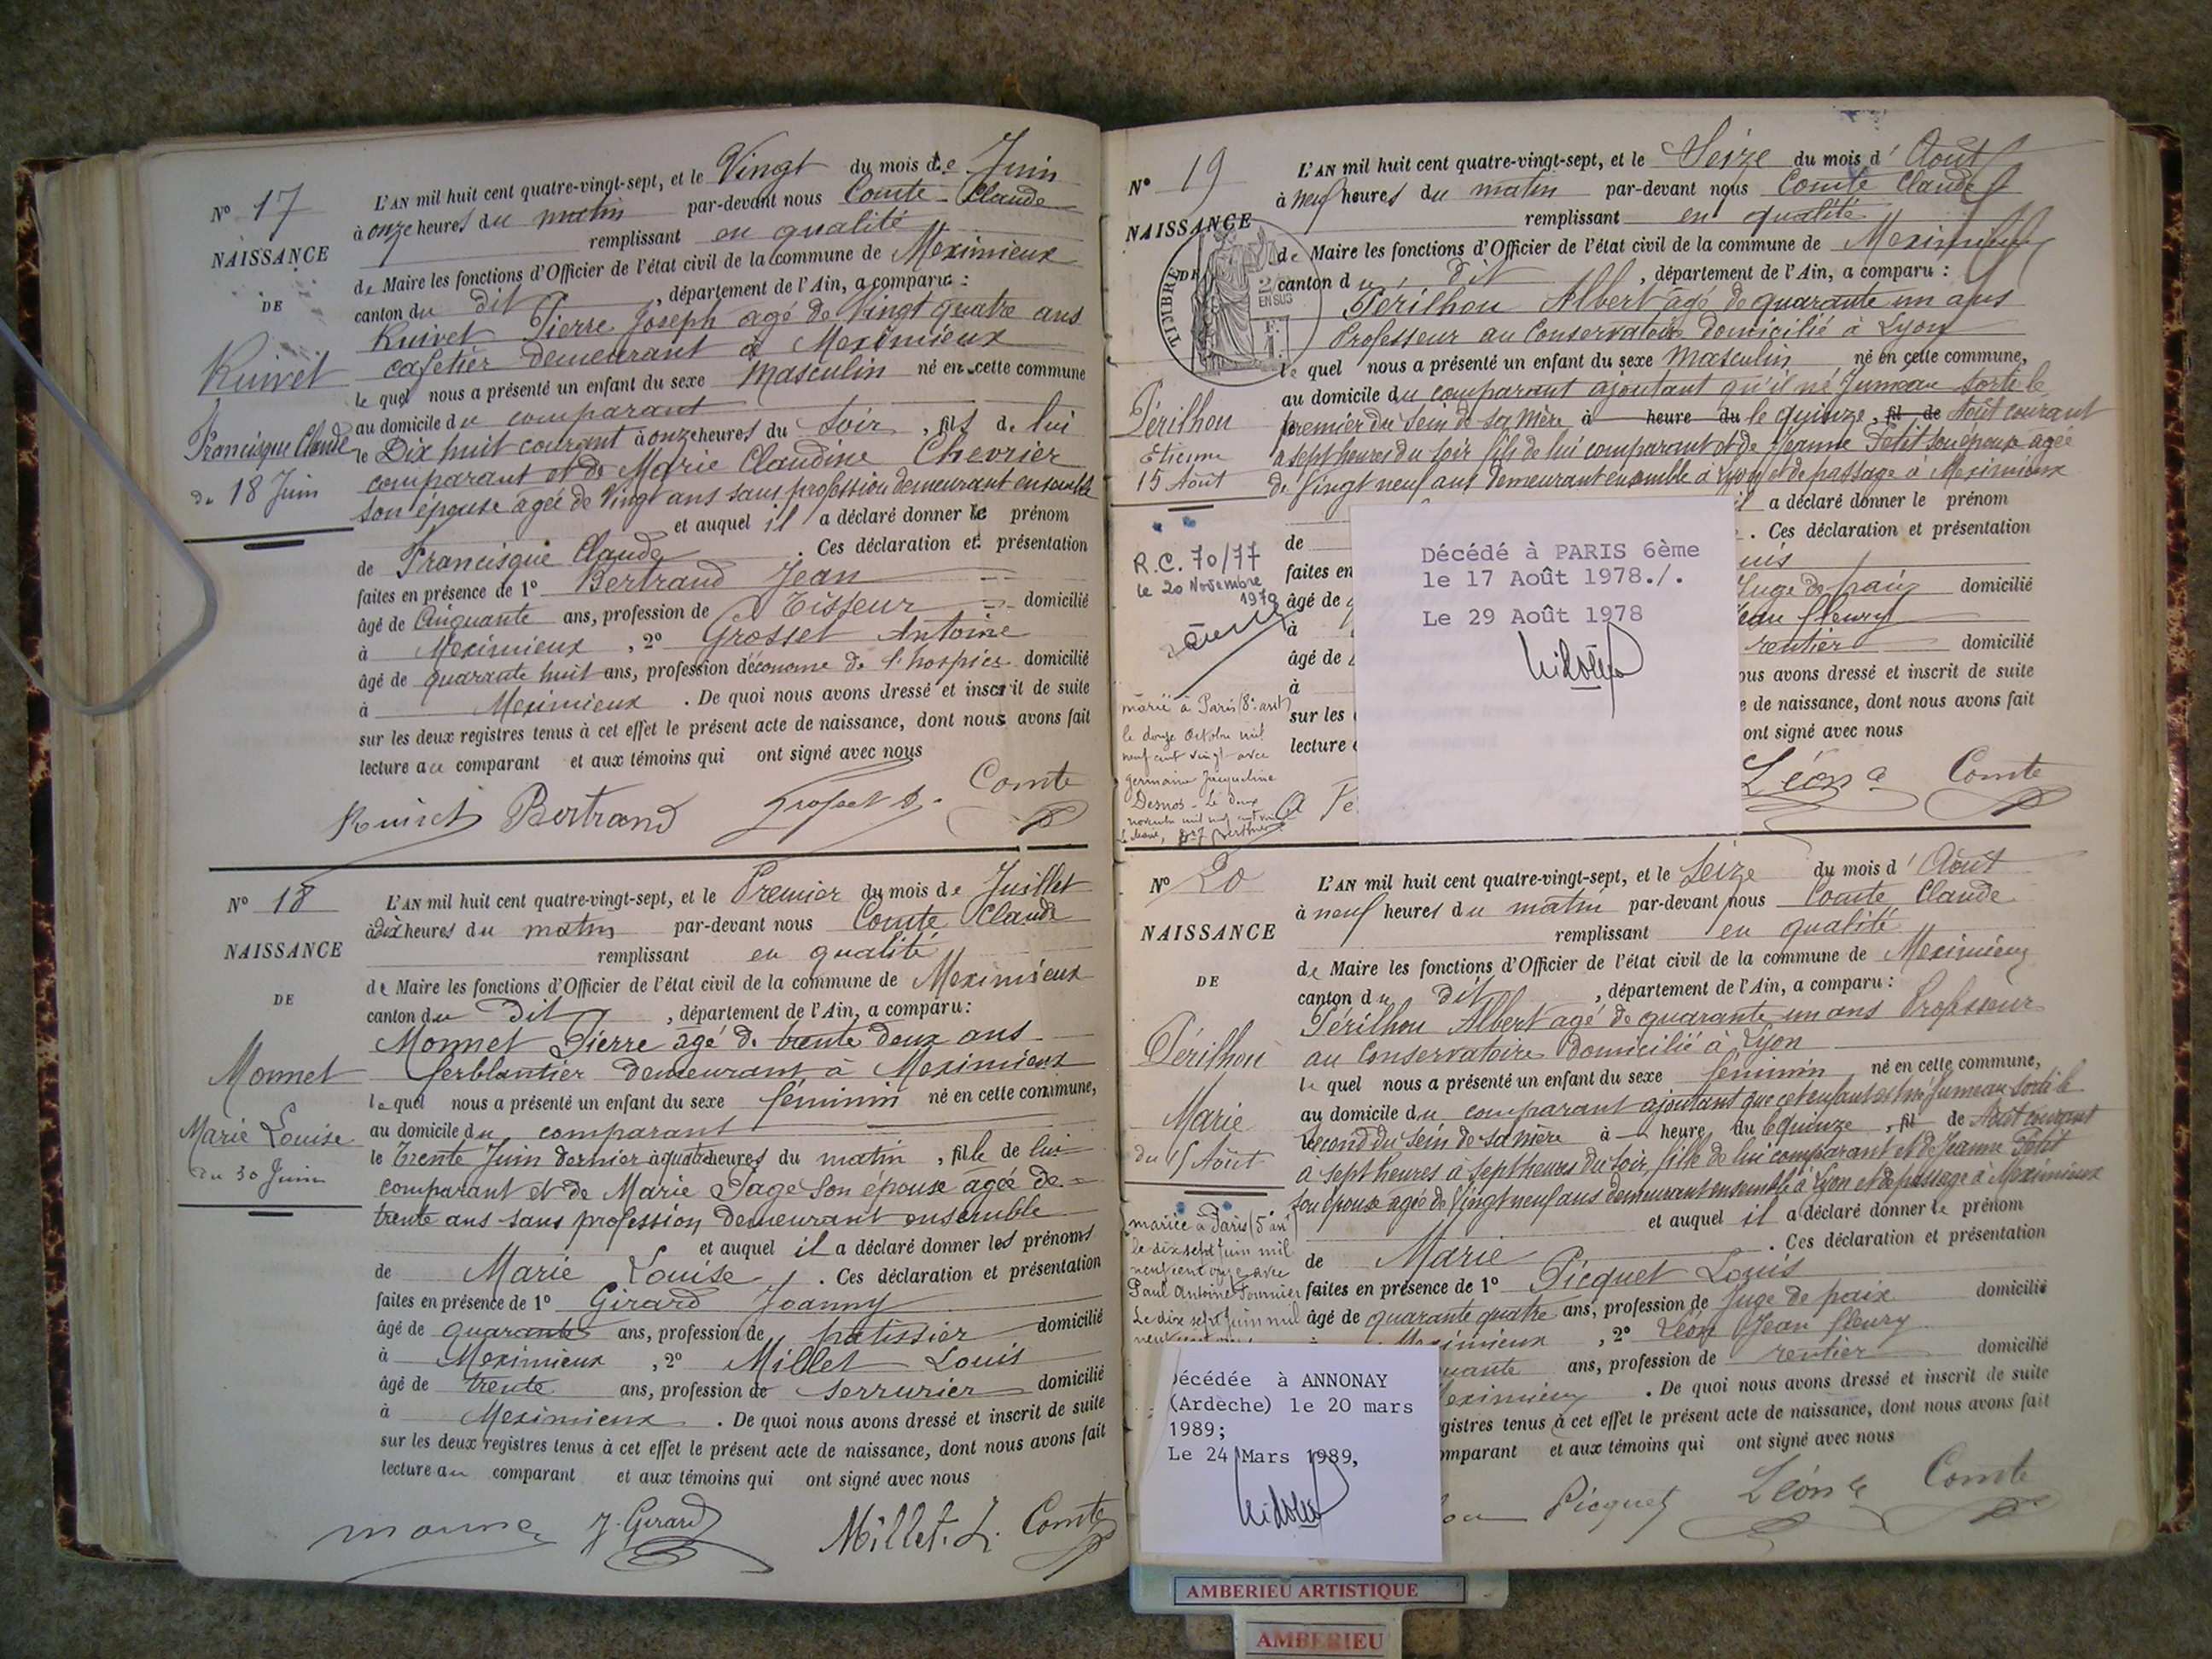 N° 17
NAISSANCE
DE
Ruivet
Francisque Claude
du 18 Juin
L'AN mil huit cent quatre-vingt-sept, et le Vingt du mois de Juin
à onze heures du matin par-devant nous Comte Claude
remplissant en qualité
de Maire les fonctions d'Officier de l'état civil de la commune de Meximieux
canton du dit, département de l'Ain, a comparu :
Ruivet Pierre Joseph agé de Vingt quatre ans
cafetier demeurant à Meximieux
le quel nous a présenté un enfant du sexe masculin né en cette commune
au domicile du comparant
le Dix huit courant à onze heures du soir, fils de lui
comparant et de Marie Claudine Chevrier
son épouse agée de Vingt ans sans profession demeurant ensemble
et auquel il a déclaré donner le prénom
de Francisque Claude. Ces déclaration et présentation
faites en présence de 1° Bertrand Jean
âgé de Cinquante ans, profession de Tisseur domicilié
à Meximieux, 2° Grosset Antoine
âgé de quarante huit ans, profession d'économe de l'hospice domicilié
à Meximieux. De quoi nous avons dressé et inscrit de suite
sur les deux registres tenus à cet effet le présent acte de naissance, dont nous avons fait
lecture au comparant et aux témoins qui ont signé avec nous
Ruivet Bertrand Grosset A. Comte
N° 18
NAISSANCE
DE
Monnet
Marie Louise
du 30 Juin
L'AN mil huit cent quatre-vingt-sept, et le Premier du mois de Juillet
à dix heures du matin par-devant nous Comte Claude
remplissant en qualité
de Maire les fonctions d'Officier de l'état civil de la commune de Meximieux
canton du Dit, département de l'Ain, a comparu :
Monnet Pierre agé de trente deux ans
ferblantier demeurant à Meximieux
le quel nous a présenté un enfant du sexe féminin né en cette commune,
au domicile du comparant
le Trente Juin dernier à quatre heures du matin, fille de lui
comparant et de Marie Page son épouse agée de
trente ans sans profession demeurant ensemble
et auquel il a déclaré donner les prénoms
de Marie Louise. Ces déclaration et présentation
faites en présence de 1° Girard Joanny
âgé de quarante ans, profession de patissier domicilié
à Meximieux, 2° Millet Louis
âgé de trente ans, profession de serrurier domicilié
à Meximieux. De quoi nous avons dressé et inscrit de suite
sur les deux registres tenus à cet effet le présent acte de naissance, dont nous avons fait
lecture au comparant et aux témoins qui ont signé avec nous
J. Girard Millet. L. Comte
N° 19
NAISSANCE
DE
TIMBRE
2/
EN SUS
Périlhou
Etienne
15 Août
R.C. 70/77
le 20 Novembre
1979
marié à Paris (8e arrt)
le douze Octobre mil
neuf cent vingt avec
Germaine Jacqueline
Desnos - Le deux
novembre mil neuf cent vingt
Le Maire,
L'AN mil huit cent quatre-vingt-sept, et le Seize du mois d'Août
à neuf heures du matin par-devant nous Comte Claude
remplissant en qualité
de Maire les fonctions d'Officier de l'état civil de la commune de Meximieux
canton du dit, département de l'Ain, a comparu :
Périlhou Albert âgé de quarante un ans
Professeur au Conservatoire domicilié à Lyon
le quel nous a présenté un enfant du sexe masculin né en cette commune,
au domicile du comparant ajoutant qu'il né Jumeau sorti le
premier du sein de sa mère à heure du le quinze, fil de Août courant
à sept heures du soir fils de lui comparant et de Jeanne Petit son épouse agée
de Vingt neuf ans demeurant ensemble à Lyon et de passage à Meximieux
il a déclaré donner le prénom
de . Ces déclaration et présentation
faites en uis
âgé de Juge de paix domicilié
à Jean fleury
âgé de rentier domicilié
à ous avons dressé et inscrit de suite
sur les e de naissance, dont nous avons fait
lecture ont signé avec nous
A Pé Léon Comte
Décédé à PARIS 6ème
le 17 Août 1978./.
Le 29 Août 1978
N° 20
NAISSANCE
DE
Périlhou
Marie
du 15 Août
mariée à Paris (5e arrt)
le dix sept Juin mil
neuf cent onze avec
Paul Antoine Fournier
Le dix sept Juin mil
L'AN mil huit cent quatre-vingt-sept, et le Seize du mois d'Août
à neuf heures du matin par-devant nous Comte Claude
remplissant en qualité
de Maire les fonctions d'Officier de l'état civil de la commune de Meximieux
canton du dit, département de l'Ain, a comparu :
Périlhou Albert agé de quarante un ans Professeur
au Conservatoire domicilié à Lyon
le quel nous a présenté un enfant du sexe féminin né en cette commune,
au domicile du comparant ajoutant que cet enfant est né Jumeau sorti le
second du sein de sa mère à heure du le quinze, fil de Août courant
a sept heures à sept heures du soir, fille de lui comparant et de Jeanne Petit
son épouse agée de Vingt neuf ans demeurant ensemble à Lyon et de passage à Meximieux
et auquel il a déclaré donner le prénom
de Marie. Ces déclaration et présentation
faites en présence de 1° Picquet Louis
âgé de quarante quatre ans, profession de Juge de paix domicilié
Meximieux, 2° Léon Jean fleury
uante ans, profession de rentier domicilié
eximieux. De quoi nous avons dressé et inscrit de suite
gistres tenus à cet effet le présent acte de naissance, dont nous avons fait
mparant et aux témoins qui ont signé avec nous
ou Picquet Léon Comte
écédée à ANNONAY
(Ardèche) le 20 mars
1989;
Le 24 Mars 1989,
AMBERIEU ARTISTIQUE
AMBERIEU